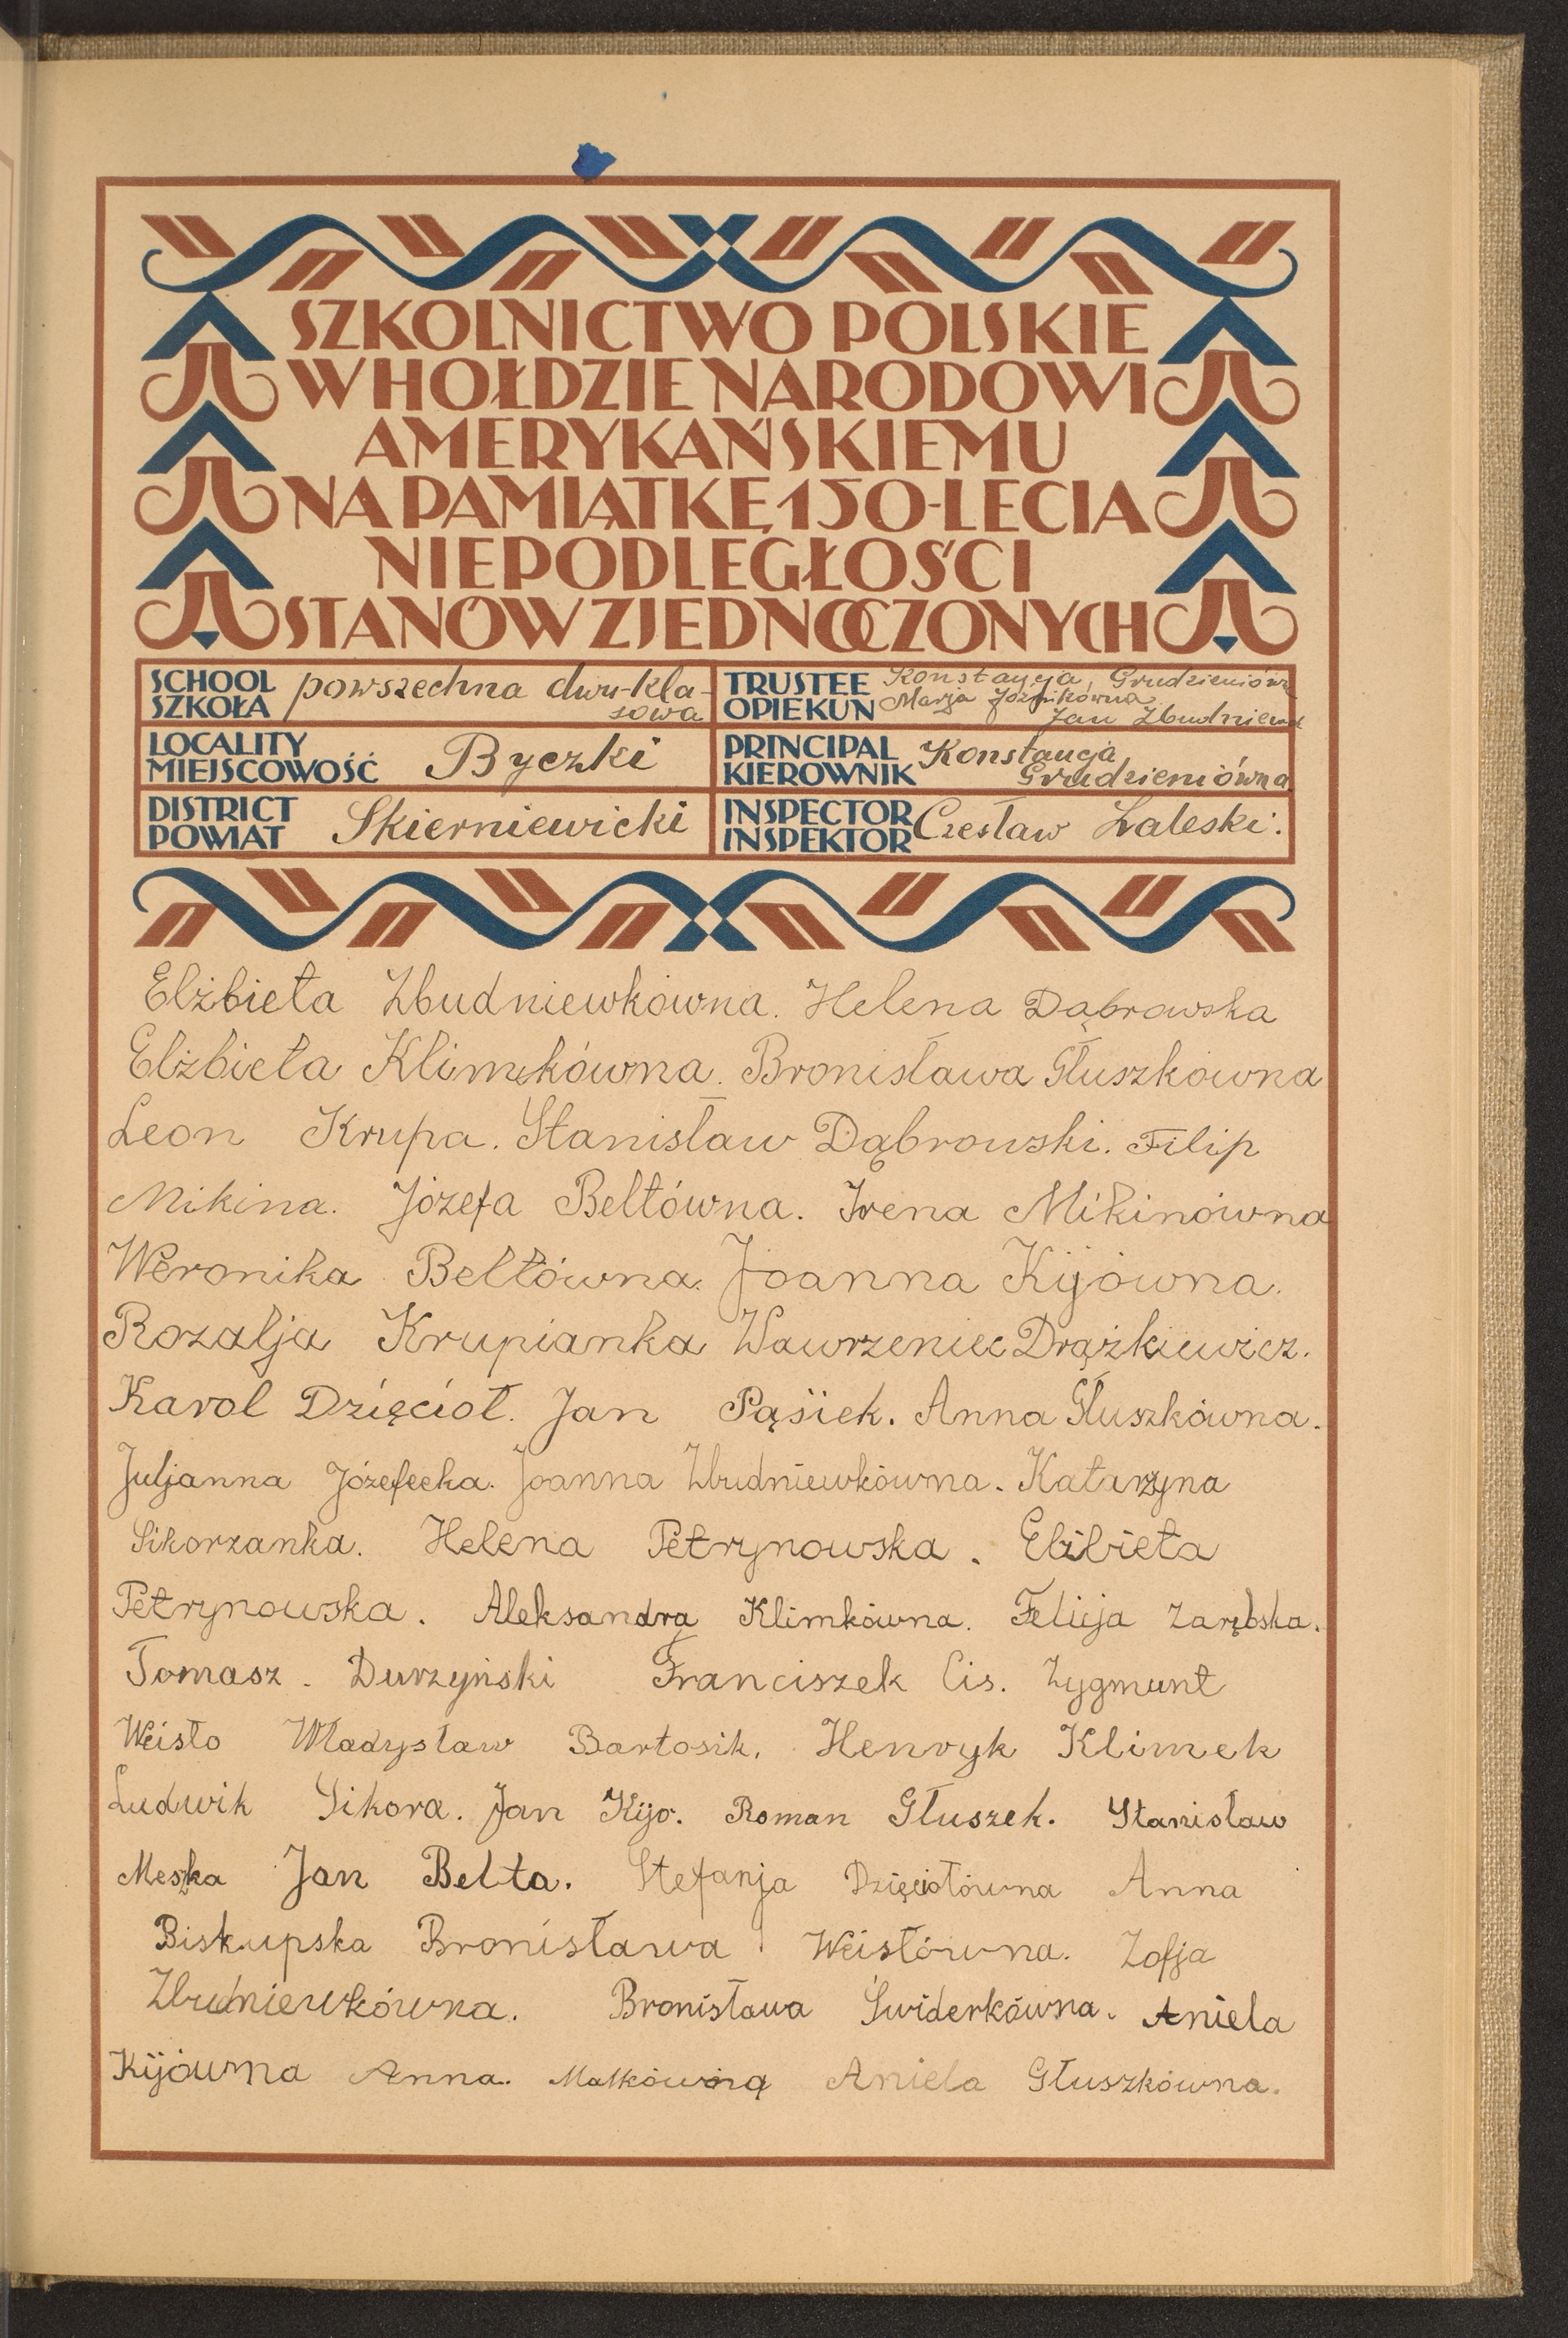 SZKOLNICTWO POLSKIE
W HOŁDZIE NARODOWI
AMERYKAŃSKIEMU
NA PAMIĄTKĘ 150-LECIA
NIEPODLEGŁOŚCI
STANÓW ZJEDNOCZONYCH
SCHOOL
SZKOŁA
powszechna dwu-kla-
sowa
TRUSTEE
OPIEKUN
Konstancja Grudzieniówn
Marja
Jan Zbudniewek
LOCALITY
MIEJSCOWOŚĆ
Byczki
PRINCIPAL
KIEROWNIK
Konstancja
Grudzieniówna
DISTRICT
POWIAT
Skierniewicki
INSPECTOR
INSPEKTOR
Czesław Zaleski.
Elżbieta Zbudniewkówna. Helena Dąbrowska
Elżbieta Klimkówna. Bronisława Głuszkówna
Leon Krupa. Stanisław Dąbrowski. Filip
Mikina. Józefa Beltówna. Irena Mikinówna
Weronika Beltówna. Joanna Kijówna.
Rozalja Krupianka Wawrzeniec Drążkiewicz.
Karol Dzięcioł. Jan Pąsiek. Anna Głuszkówna.
Juljanna Józefecka. Joanna Zbudniewkówna. Katarzyna
Sikorzanka. Helena Petrynowska. Elżbieta
Petrynowska. Aleksandra Klimkówna. Felicja Zarębska.
Tomasz. Durzyński Franciszek Cis. Zygmunt
Weisło Władysław Bartosik. Henryk Klimek
Ludwik Sikora. Jan Kijo. Roman Głuszek. Stanisław
Meszka Jan Belta. Stefanja Dzięciołówna Anna
Biskupska Bronisława Weisłówna. Zofja
Zbudniewkówna. Bronisława Świderkówna. Aniela
Kijówna Anna. Małkówna Aniela Głuszkówna.